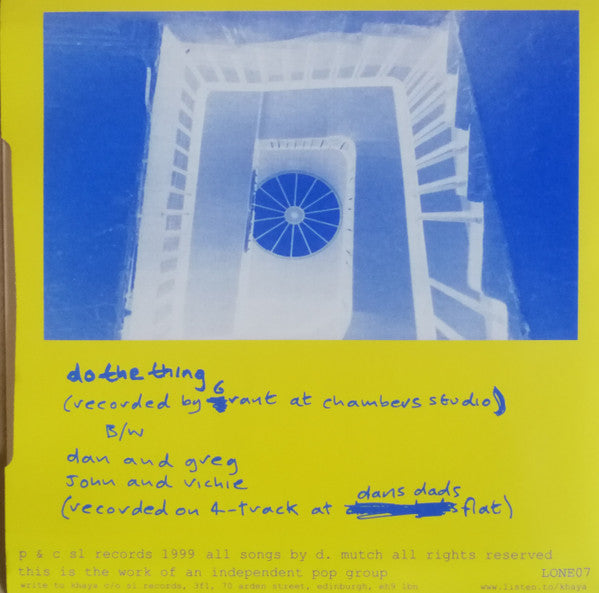 do the thing
(recorded by Grant at chambers studio)
B/W
dan and greg
John and vichie
(recorded on 4-track at dans dads flat)
p & c sl records 1999 all songs by d. mutch all rights reserved
this is the work of an independent pop group
LONE07
write to khaya c/o sl records, 3f1, 70 arden street, edinburgh, eh9 1bn
www.listen.to/khaya